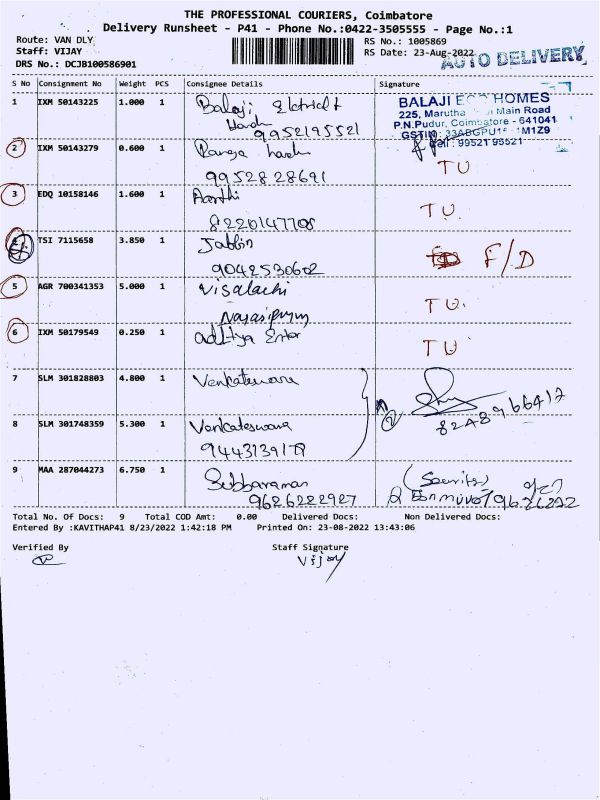 THE PROFESSIONAL COURIERS, Coimbatore
Delivery Runsheet - P41 - Phone No.:0422-3505555 - Page No.:1
Route: VAN DLY RS No.: 1005869
Staff: VIJAY RS Date: 23-Aug-2022 AUTO DELIVERY
DRS No.: DCJB100586901
S No Consignment No Weight PCS Consignee Details Signature
1 IXM 50143225 1.000 1 Balaji Electricl &
9952195521
BALAJI HOMES
225, Marutha Main Road
P.N.Pudur, Coimbatore - 641041
Cell : 99521 95521
2 IXM 50143279 0.600 1 Ranga
9952828691 TU
3 EDQ 10158146 1.600 1 Aarthi TU.
8220147708
4 TSI 7115658 3.850 1 Jabbin F/D
9042530602
5 AGR 700341353 5.000 1 Visalachi TU.
6 IXM 50179549 0.250 1 aditya Enter TU
7 SLM 301828803 4.800 1 Venkateswara
8 SLM 301748359 5.300 1 Venkateswara
9443139179
9 MAA 287044273 6.750 1 Subbaraman
9626222927
Total No. Of Docs: 9 Total COD Amt: 0.00 Delivered Docs: Non Delivered Docs:
Entered By :KAVITHAP41 8/23/2022 1:42:18 PM Printed On: 23-08-2022 13:43:06
Verified By Staff Signature
Vijay